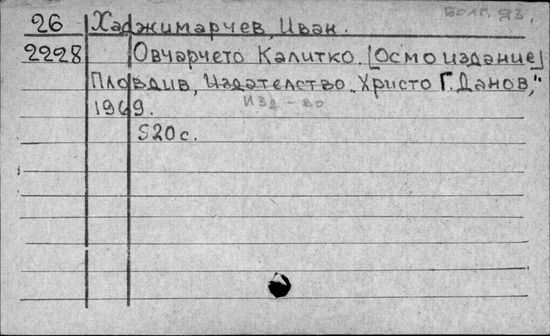 Болг. яз.
26 Хаджимарчев, Иван.
2228 Овчарчето Калитко. [Осмо издание]
Пловдив, Издателство. Христо Г. Данов,"
1969. Изд-во
520с.